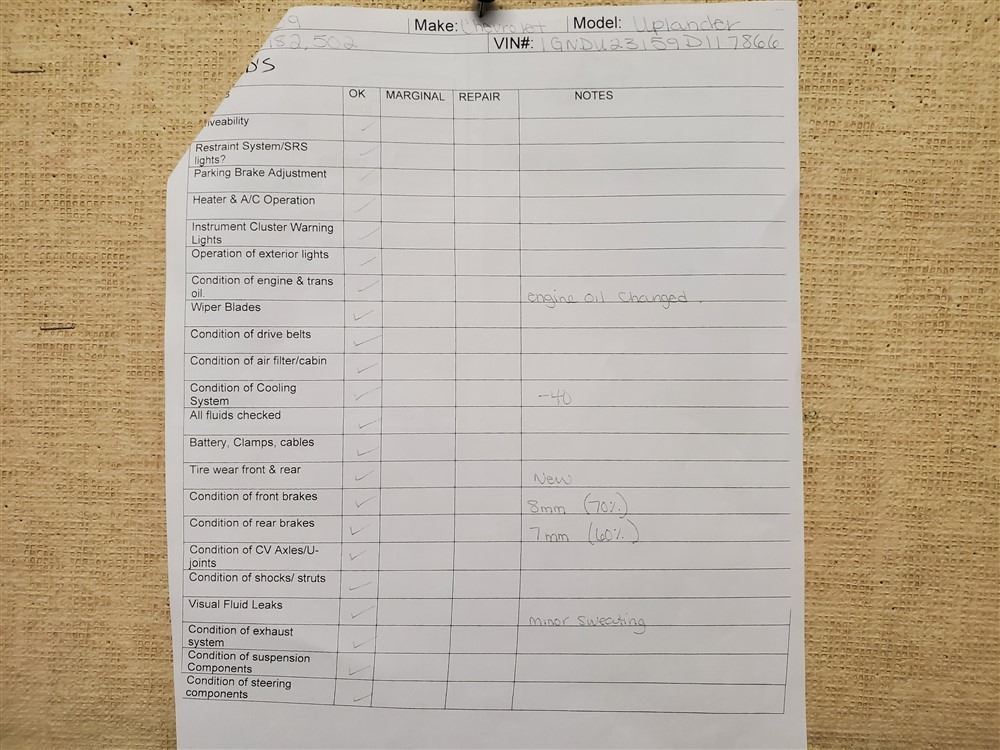 9 Make: Chevrolet Model: Uplander
182,502 VIN#: 1GNDU23159D117866
D'S
OK MARGINAL REPAIR NOTES
iveability
Restraint System/SRS
lights?
Parking Brake Adjustment
Heater & A/C Operation
Instrument Cluster Warning
Lights
Operation of exterior lights
Condition of engine & trans
oil. engine oil changed.
Wiper Blades
Condition of drive belts
Condition of air filter/cabin
Condition of Cooling
System -40
All fluids checked
Battery, Clamps, cables
Tire wear front & rear New
Condition of front brakes 8mm (70%)
Condition of rear brakes 7mm (60%)
Condition of CV Axles/U-
joints
Condition of shocks/ struts
Visual Fluid Leaks minor sweating
Condition of exhaust
system
Condition of suspension
Components
Condition of steering
components